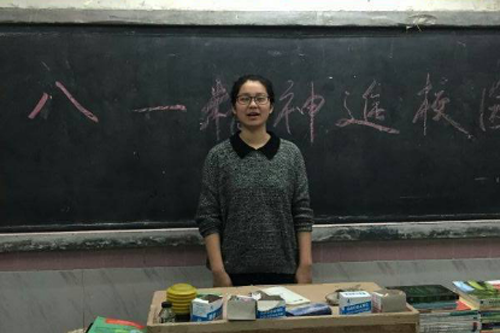 八一精神进校园